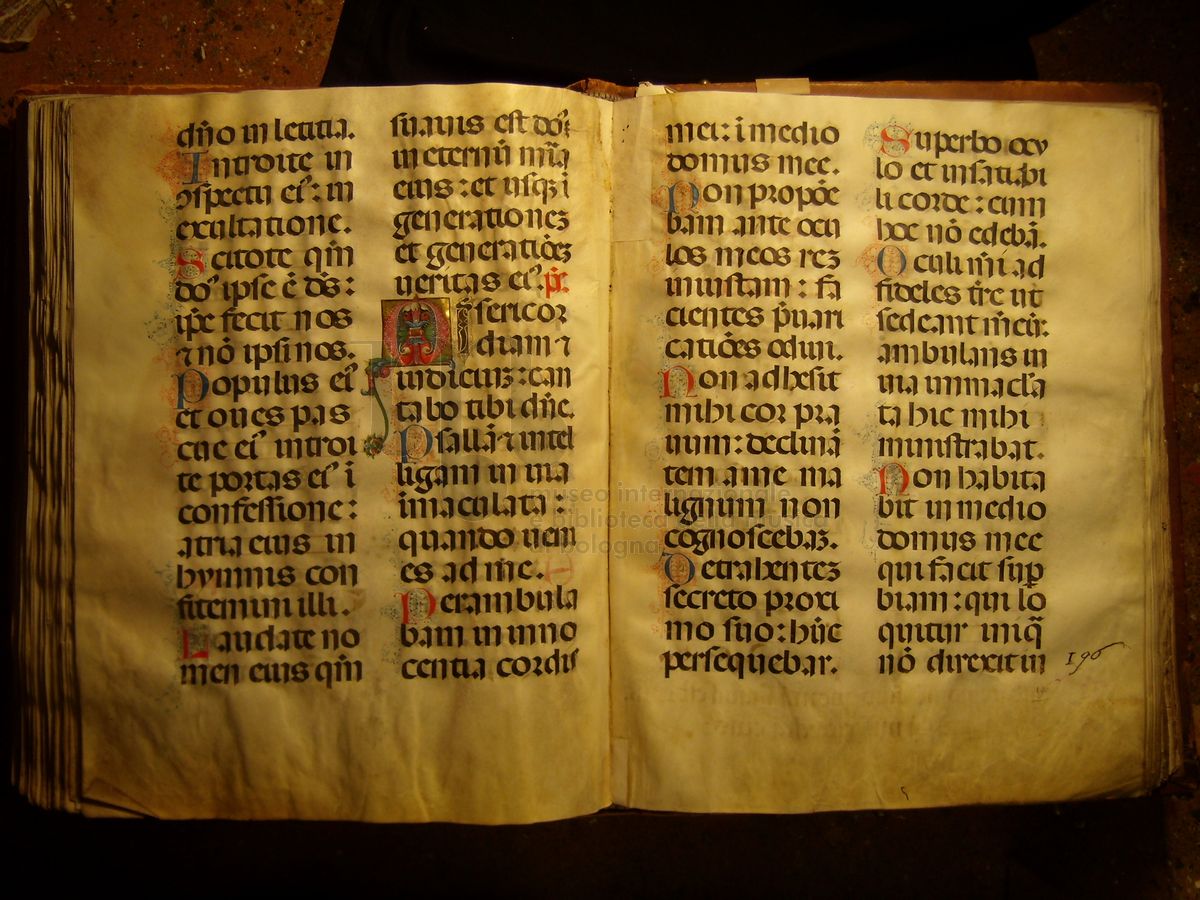 dño in letitia.
Introite in
ɔspectu ei⁹: in
exultatione.
Scitote qm̄
do⁹ ipse ē ds̄:
ip̄e fecit nos
⁊ nō ipsi nos.
Populus ei⁹
et oues pas
cue ei⁹ introi
te portas ei⁹ ī
confessione:
atria eius in
hymnis con
fitemini illi.
Laudate no
men eius qm̄
suauis est do⁹:
in eternū mīa
eius: et usqꝫ ī
generationeꝫ
et generatiōeꝫ
ueritas ei⁹. ps̄.
Misericor
diam ⁊
iudiciuꝫ: can
tabo tibi dñe.
Psallā ⁊ intel
ligam in uia
īmaculata:
quando ueni
es ad me.
Perambula
bam in inno
centia cordis
mei: ī medio
domus mee.
Non propōe
bam ante ocu
los meos reꝫ
iniustam: fa
cientes p̄uari
catiōes odiui.
Non adhesit
mihi cor pra
uum: declinā
tem a me ma
lignum non
cognoscebaꝫ.
Detrahenteꝫ
secreto proxi
mo suo: hūc
persequebar.
Superbo ocu
lo et insatiabi
li corde: cum
hoc nō edebā.
Oculi mī ad
fideles tr̄e ut
sedeant mecū:
ambulans in
uia immacla
ta hic mihi
ministrabat.
Non habita
bit in medio
domus mee
qui facit suꝑ
biam: qui lo
quitur iniq̄
nō direxit in
196
museo internazionale
e biblioteca della musica
di bologna